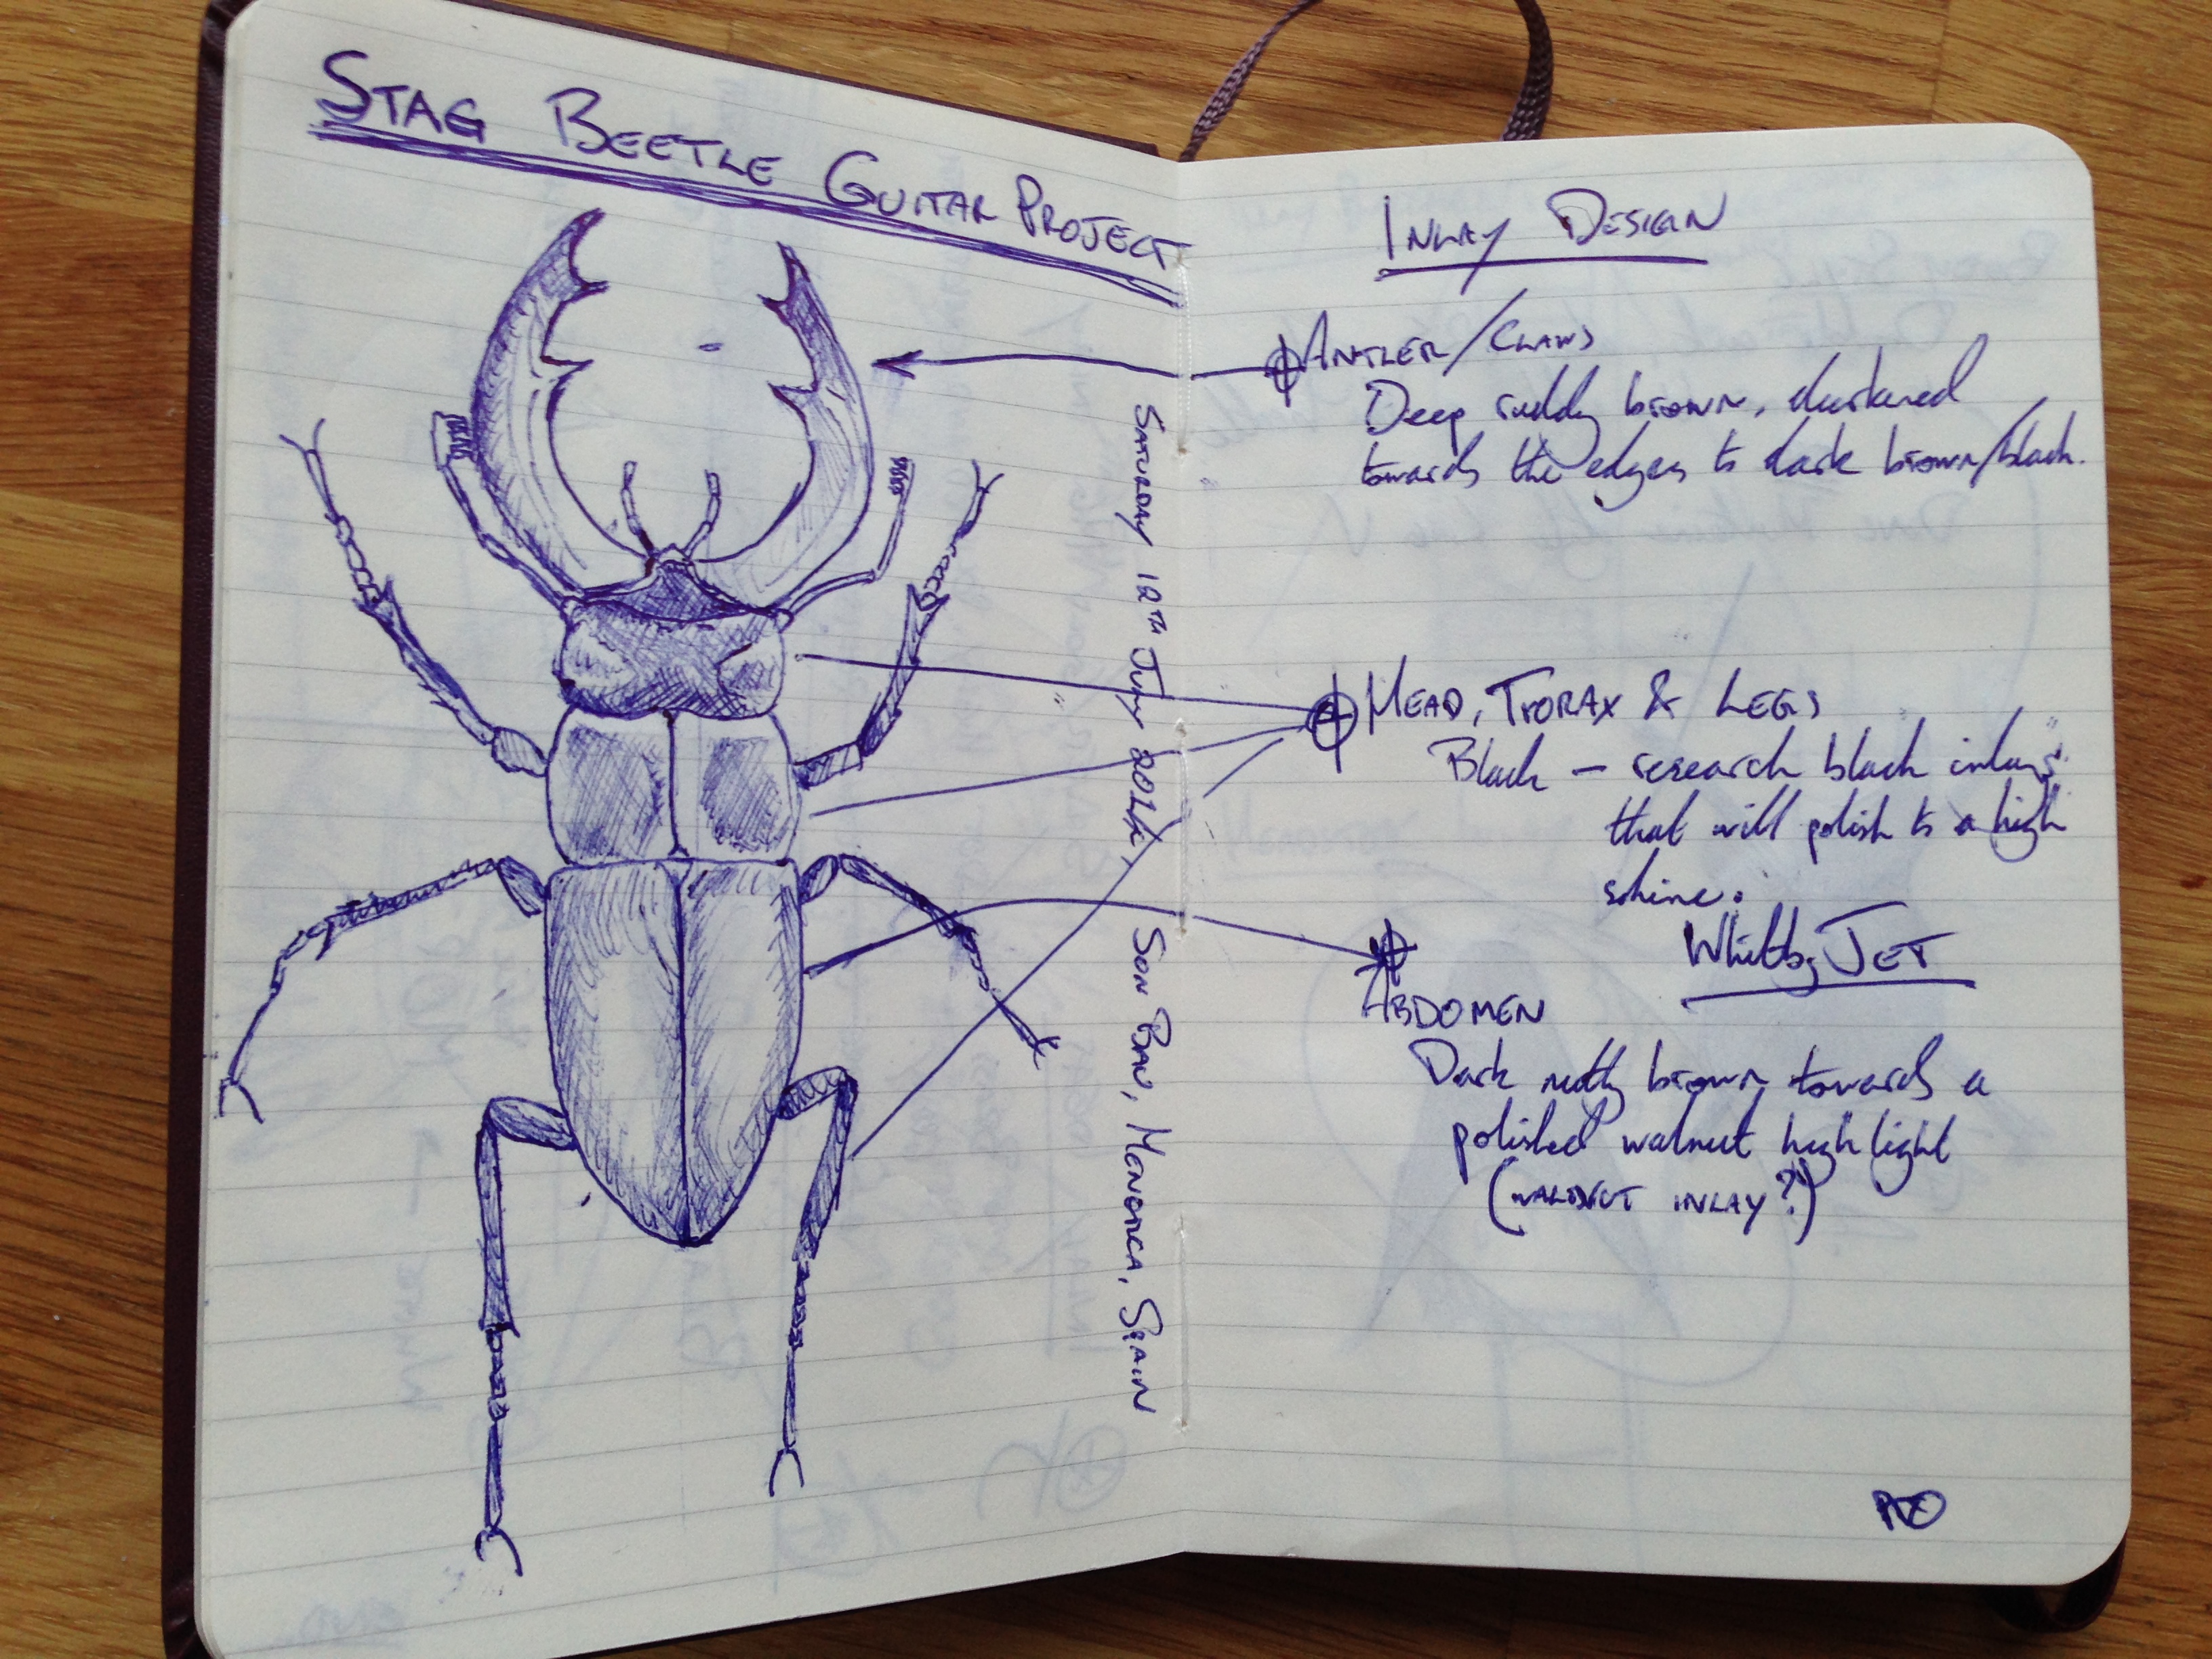 STAG BEETLE GUITAR PROJECT
SATURDAY 12TH JULY 2014, SON BOU, MENORCA, SPAIN
INLAY DESIGN
ANTLER/CLAWS
Deep ruddy brown, darkened
towards the edges to dark brown/black.
HEAD, THORAX & LEGS
Black – research black inlays
that will polish to a high
shine.
Whitby JET
ABDOMEN
Dark nutty brown towards a
polished walnut highlight
(WALNUT INLAY?)